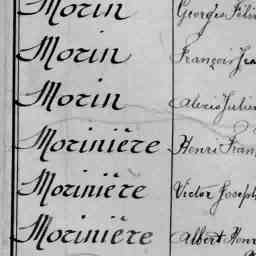 Morin Georges Féli
Morin François Jea
Morin Alexis Julien
Morinière Henri Fran
Morinière Victor Joseph
Morinière Albert Henri